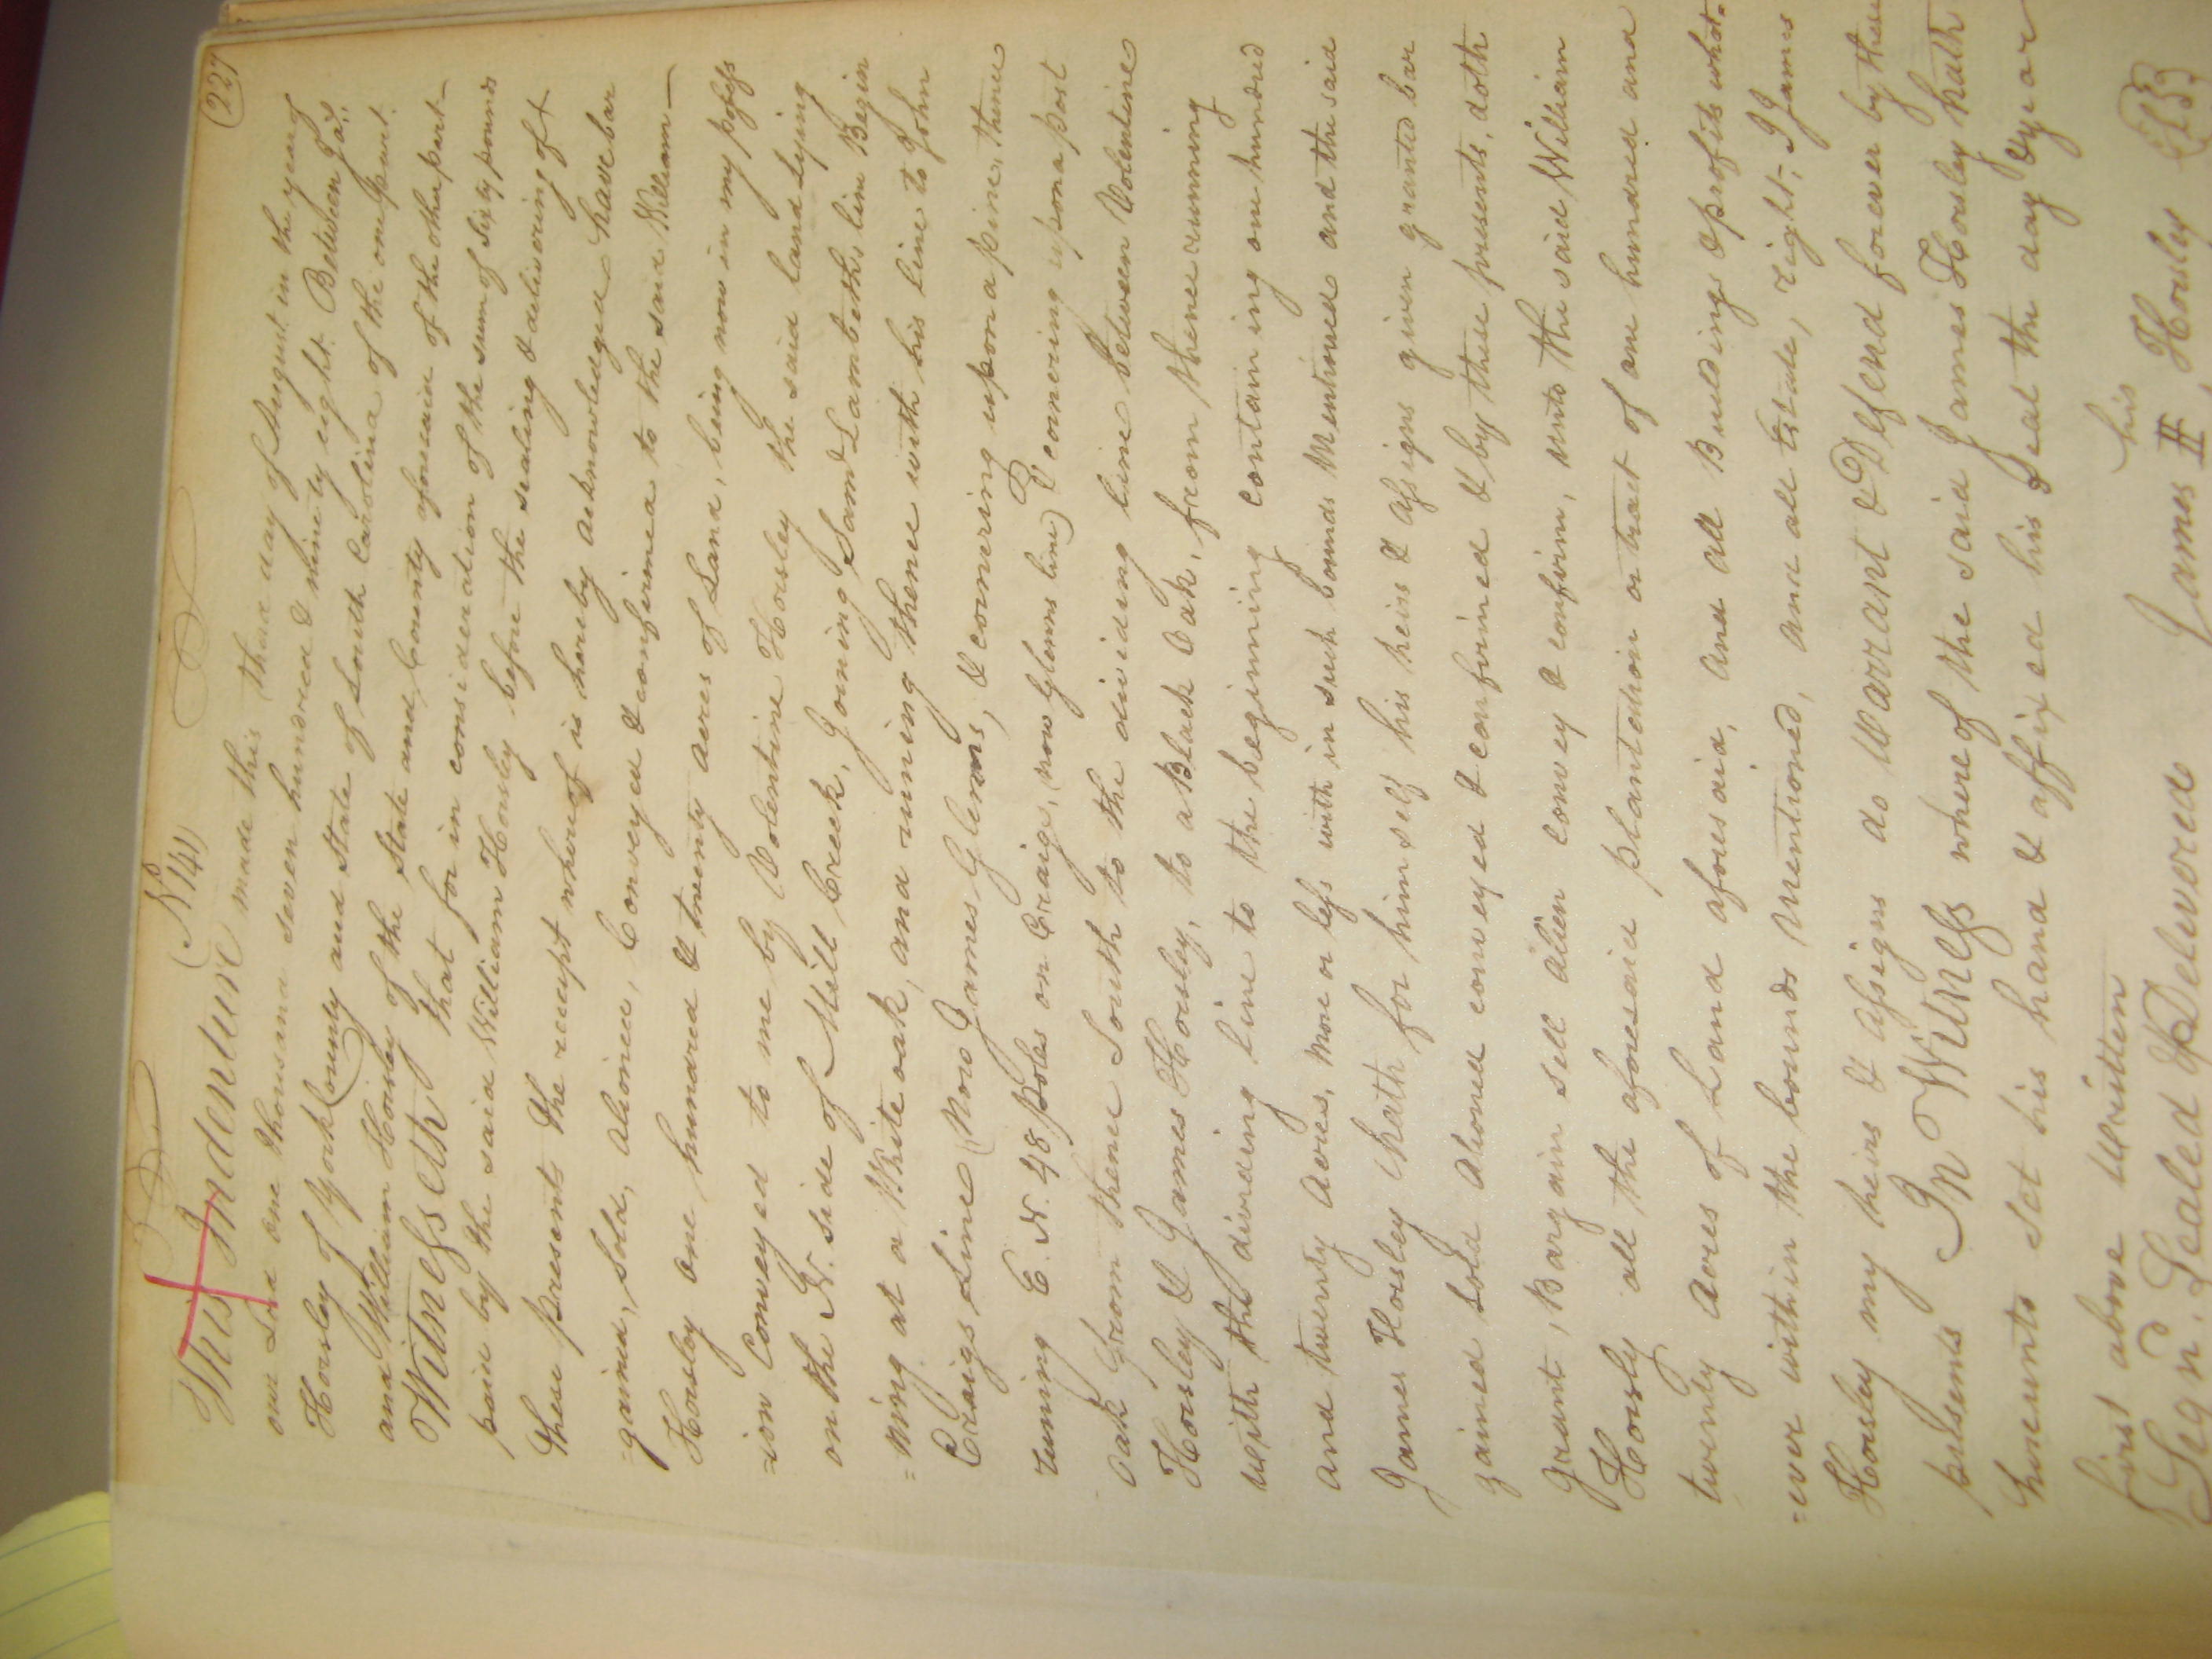 (227
(No 141)
This Indenture made this third day of August in the year of
our Lord one thousand seven hundred & ninety eight. Between Jas
Housley of York County and State of South Carolina of the one part
and William Housley of the State and County aforesaid of the other part
Witnesseth that for in consideration of the sum of Sixty pounds
paid by the said William Housley before the sealing & delivering of
these presents the receipt whereof is hereby acknowledged have bar
=gained, Sold, aliened, Conveyed & confirmed to the said William
Housley one hundred & twenty acres of Land, being now in my posess
=ion Conveyed to me by Volentine Housley the said land Lying
on the N. side of Mill Creek, Joining Saml Lambeths line Begin
=ning at a White oak, and runing thence with his line to John
Craigs Line (Now James Glenns, & cornering upon a pine, thence
runing E. N. 48. Poles on Craig, (now Glenns line) & cornering upon a post
oak from thence South to the dividing line between Volentine
Housley & James Housley, to a Black Oak, from thence running
with the dividing line to the beginning containing one hundred
and twenty Acres, more or less with in such bounds Mentioned and the said
James Housley hath for himself his heirs & assigns given granted bar
gained sold Alioned conveyed & confirmed & by these presents, doth
grant, Bargain sell alien convey & confirm, unto the said William
Hously all the aforesaid plantation or tract of one hundred and
twenty acres of Land aforesaid, and all Buildings & profits what=
=ever within the bounds Mentioned, and all Estate, right, I James
Housley my heirs & assigns do Warrant & Defend forever by these
presents In Witness where of the said James Housley hath
hereunto set his hand & affixed his seal the day & year
first above written his
Sign. Sealed & Delivered James H Housley {LS}